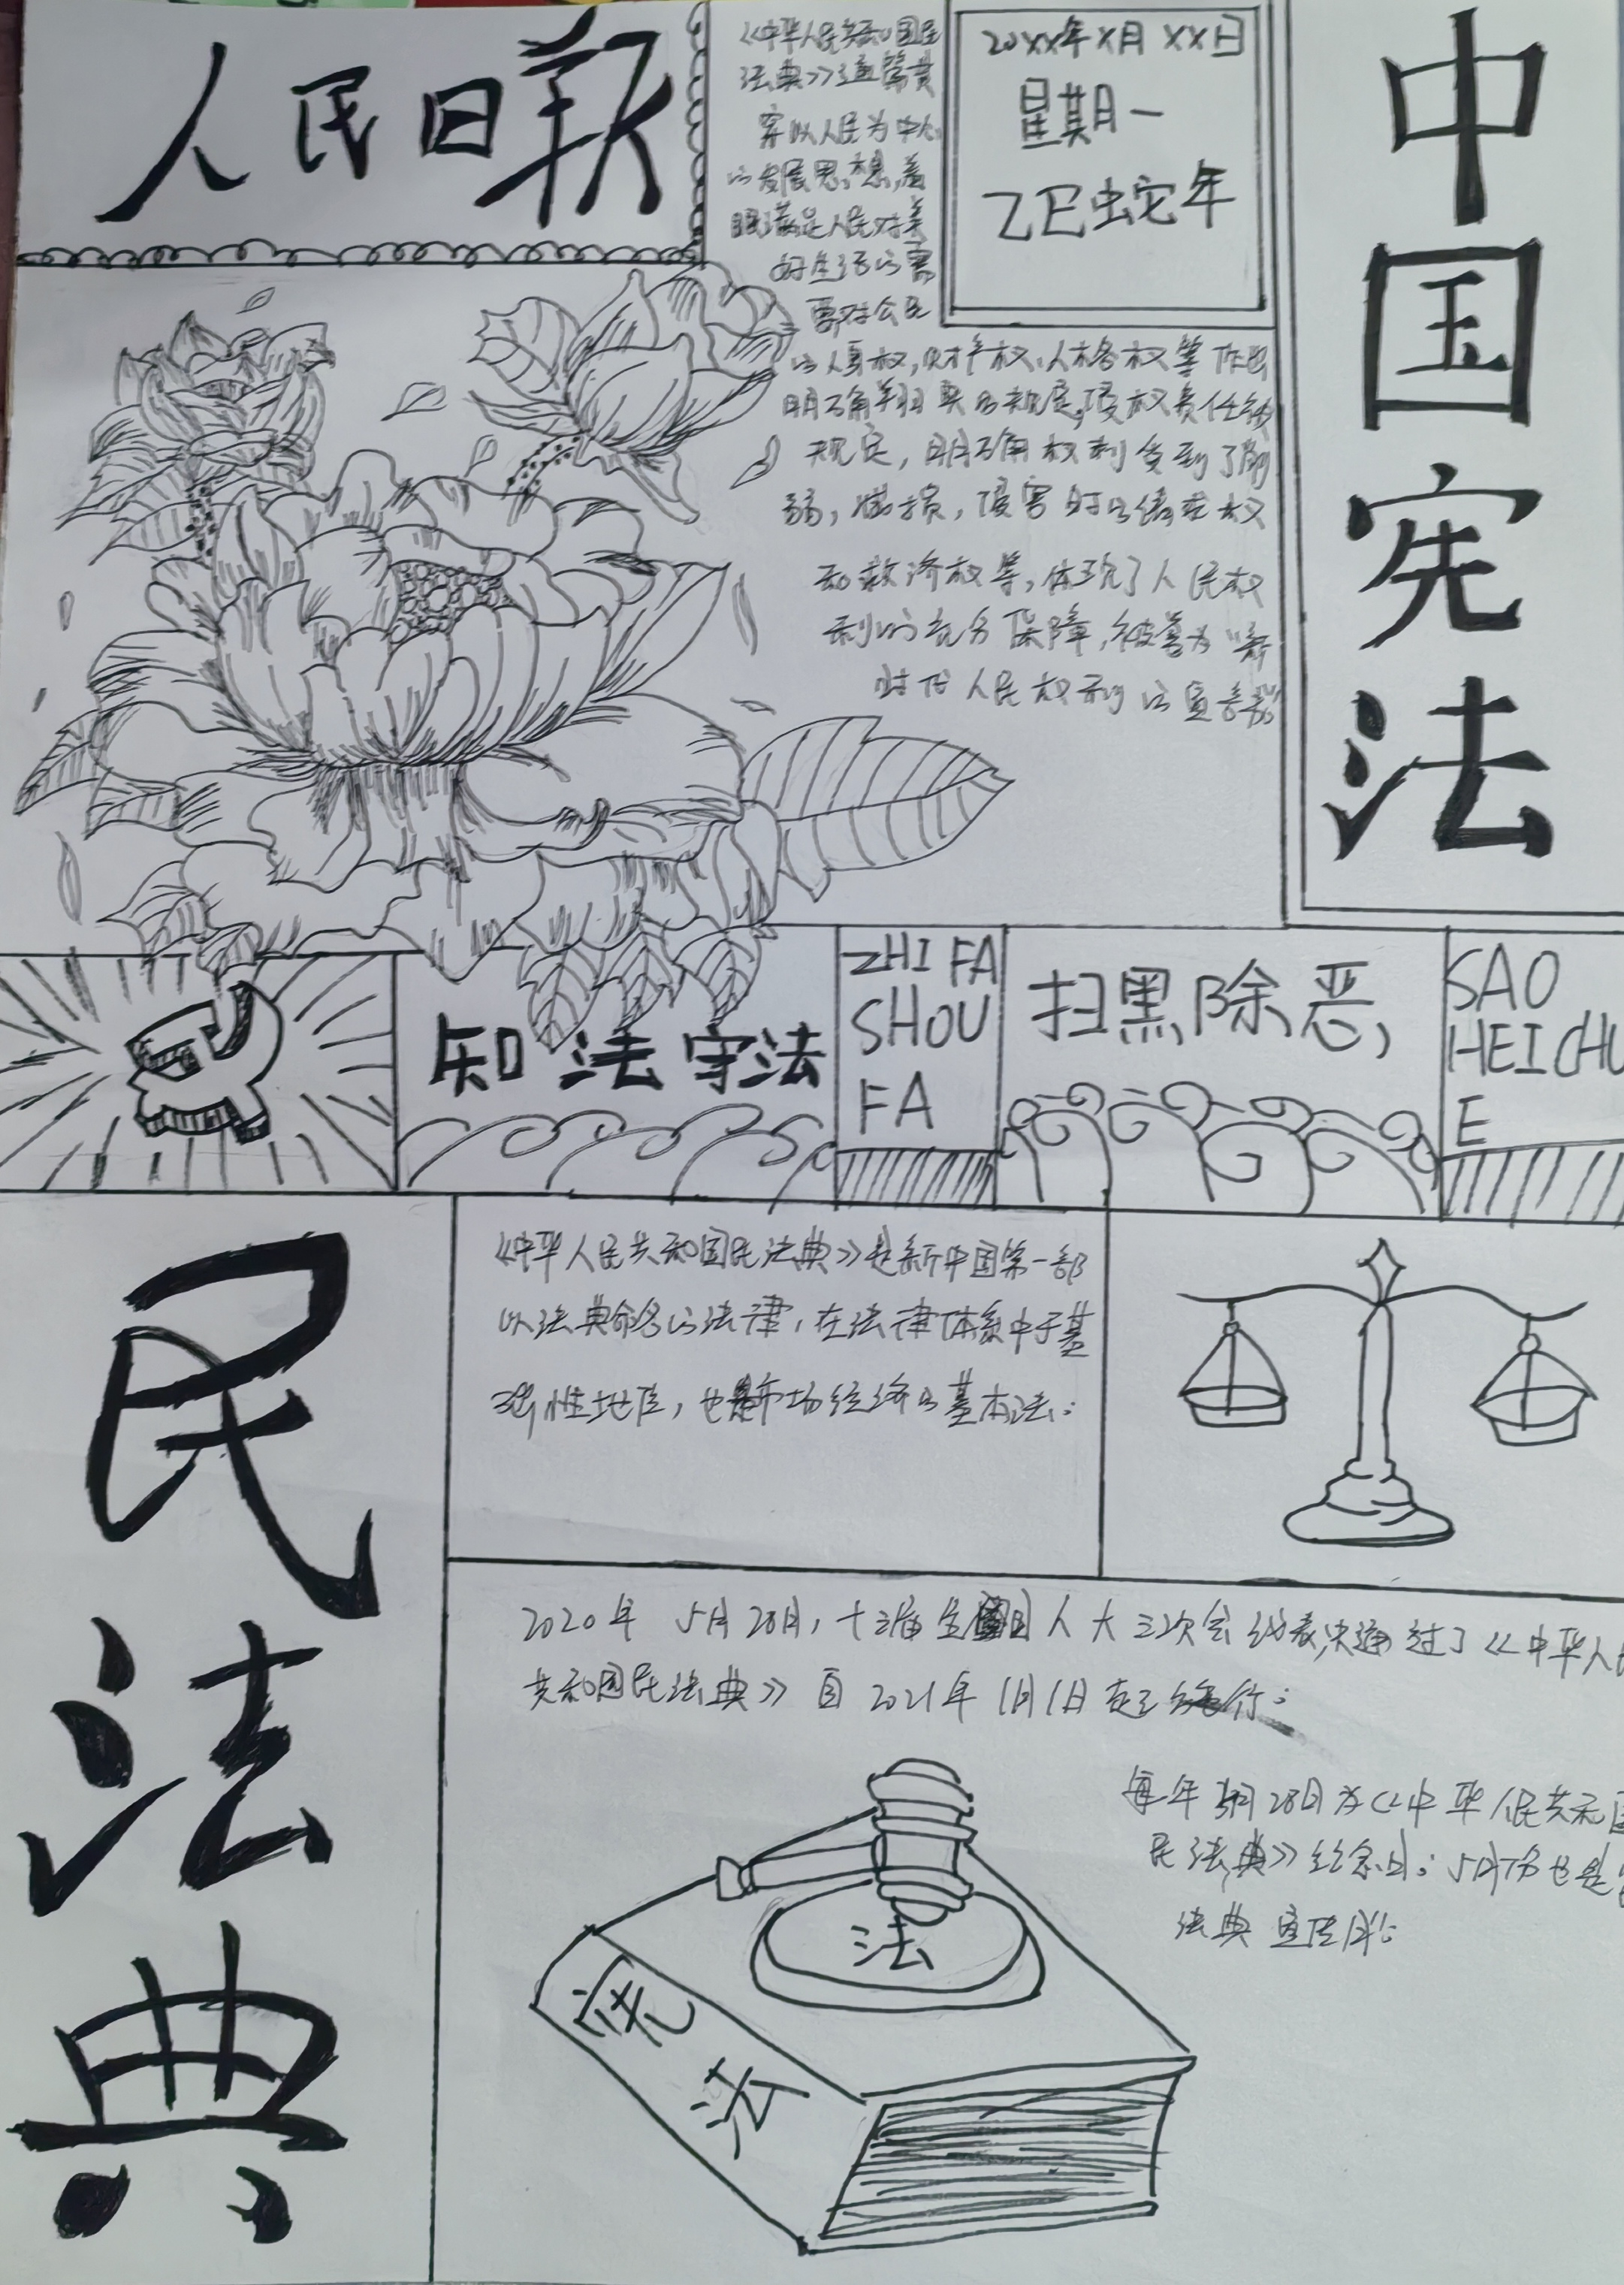 人民日报
《中华人民共和国民
法典》通篇贯
穿以人民为中心
的发展思想,着
眼满足人民对美
好生活的需
要对公民
20XX年X月XX日
星期一
乙巳蛇年
中国宪法
的人身权,财产权,人格权等作出
明确翔实的规定,侵权责任
规定,明确权利受到了削
弱,减损,侵害时的请求权
和救济权等,体现了人民权
利的充分保障,被誉为"新
时代人民权利的宣言书"
知法守法
ZHI FA
SHOU
FA
扫黑除恶,
SAO
HEI CHU
E
民法典
《中华人民共和国民法典》是新中国第一部
以法典命名的法律,在法律体系中于基
础性地位,也是市场经济的基本法:
2020年 5月28日,十三届全国人大三次会 表决通过了《中华人民
共和国民法典》自2021年1月1日起施行:
每年5月28日为《中华人民共和国
民法典》纪念日:5月份也是
法典宣传月:
法
宪法